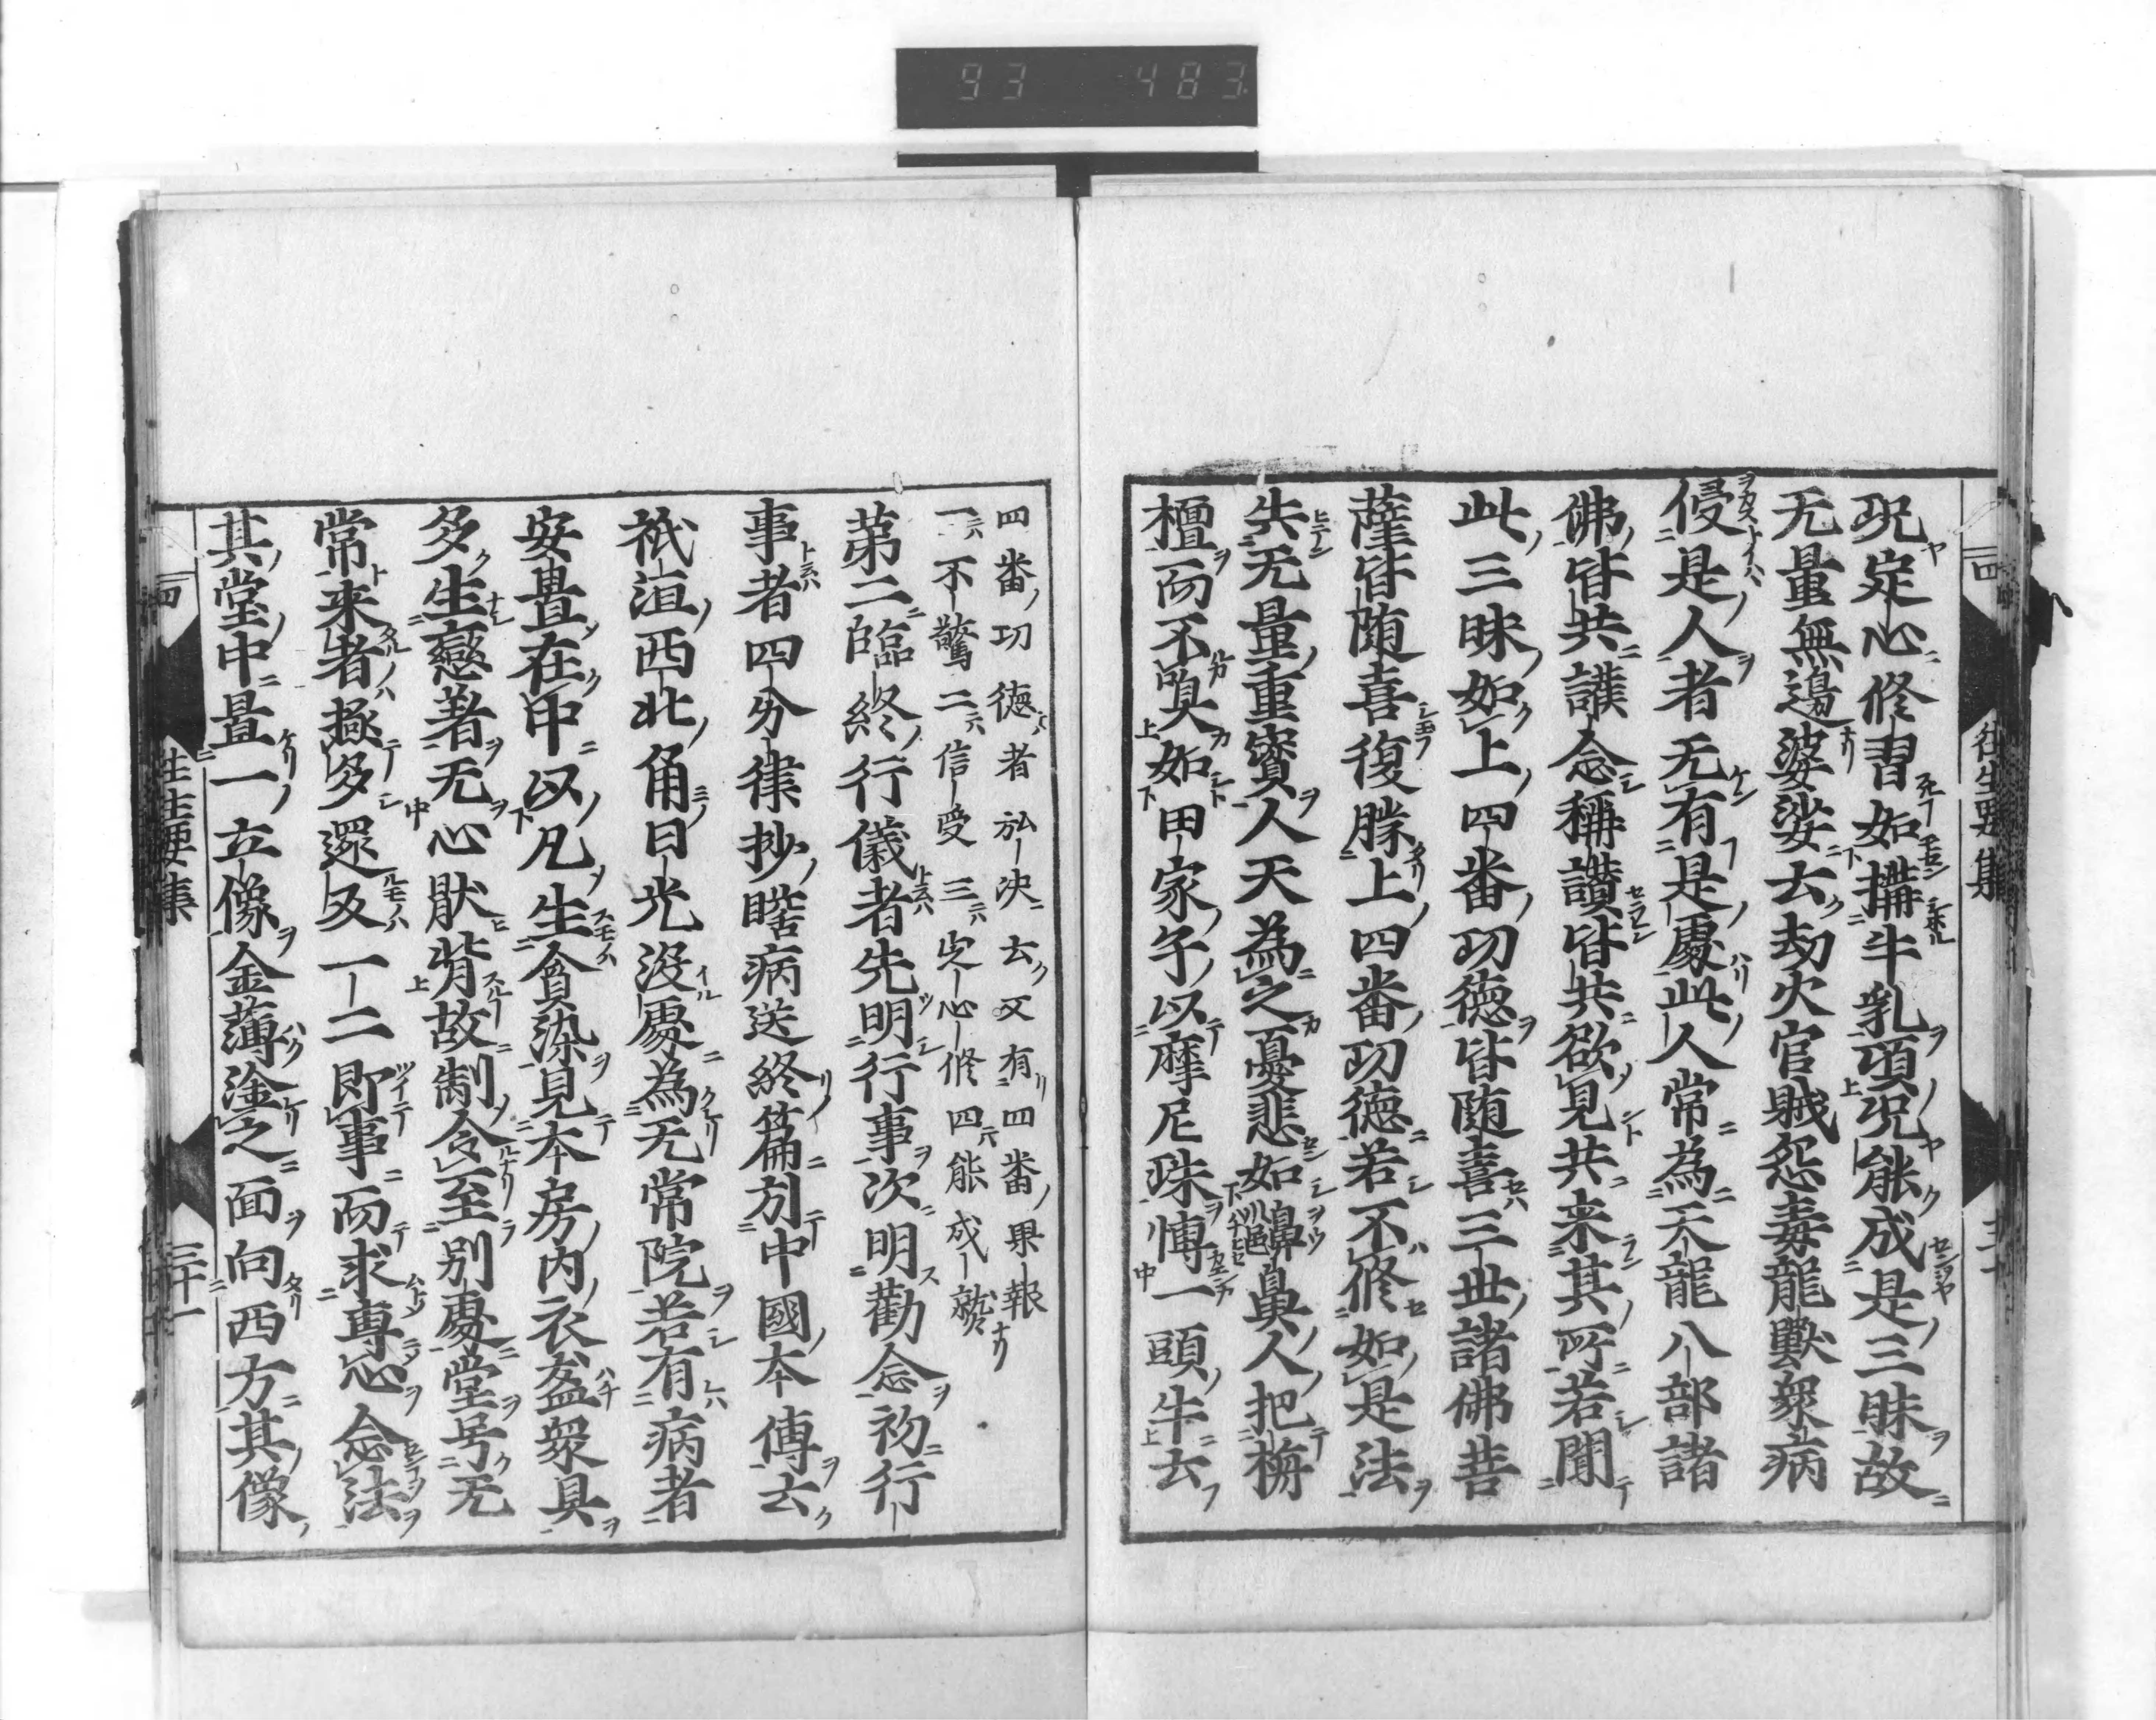 93 483
况定心修習如搆牛乳頃况能成是三昧故
无量無邊婆娑云劫火官賊怨毒龍獸衆病
侵是人者无有是處此人常為天龍八部諸
佛皆共護念稱讃皆共欲見共来其所若聞
此三昧如上四番功徳皆随喜三世諸佛菩
薩皆随喜復勝上四番功徳若不修如是法
失无量重寳人天為之憂悲如齆鼻人把栴
檀而不嗅如田家子以摩尼珠博一頭牛云
四番功徳者弘决云又有四番果報
一不驚二信受三㝎心修四能成就
第二臨終行儀者先明行事次明勸念初行
事者四分律抄瞻病送終篇引中國本傳云
祇洹西北角日光没處為无常院若有病者
安置在中以凡生貪染見本房内衣盋衆具
多生戀著无心猒背故制令至別處堂号无
常来者極多還反一二即事而求專心念法
其堂中置一立像金薄塗之面向西方其像
四
往生要集
三十一